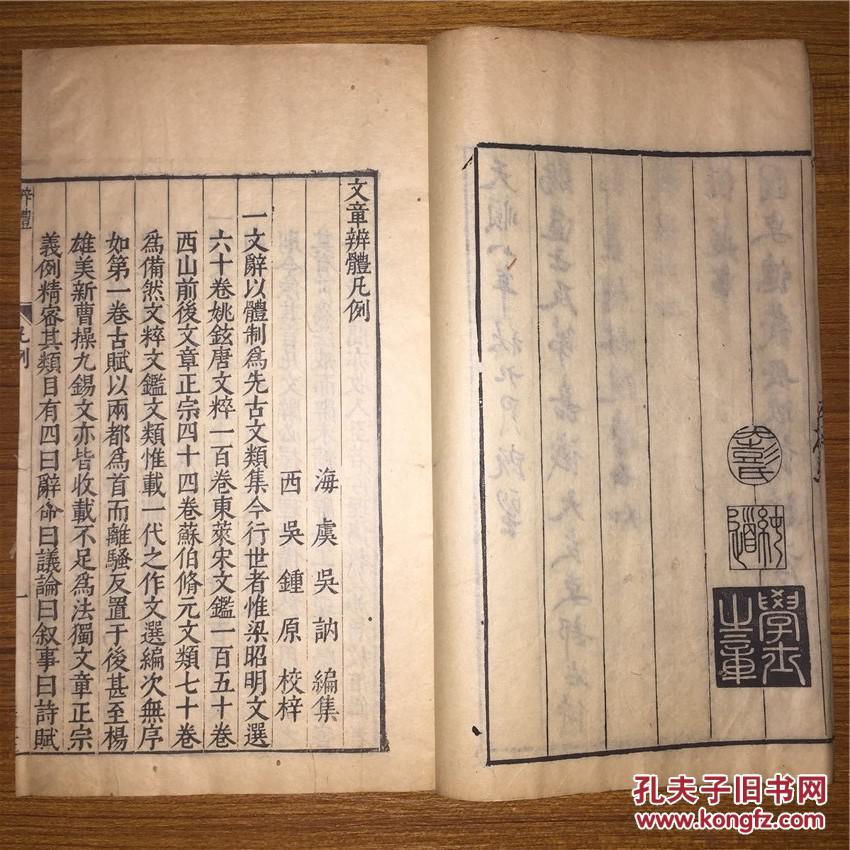 彭氏
純道
學士之章
文章辨體凡例
海虞吳訥編集
西吳鍾原校梓
一文辭以體制爲先古文類集今行世者惟梁昭明文選
六十卷姚鉉唐文粹一百卷東萊宋文鑑一百五十卷
西山前後文章正宗四十四卷蘇伯脩元文類七十卷
爲備然文粹文鑑文類惟載一代之作文選編次無序
如第一卷古賦以兩都爲首而離騷反置于後甚至楊
雄美新曹操九錫文亦皆收載不足爲法獨文章正宗
義例精密其類目有四曰辭命曰議論曰叙事曰詩賦
辨體 凡例 一
孔夫子旧书网
www.kongfz.com